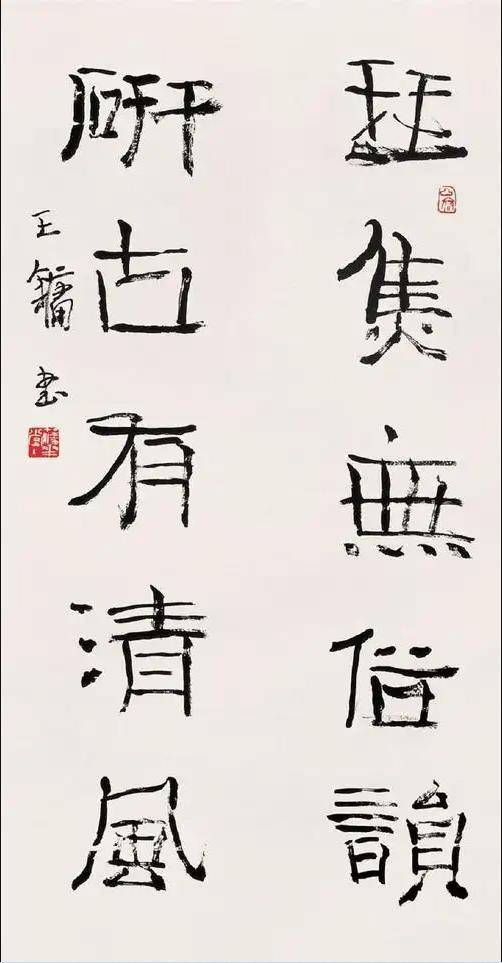 集無俗韻
研古有清風
王鏞書